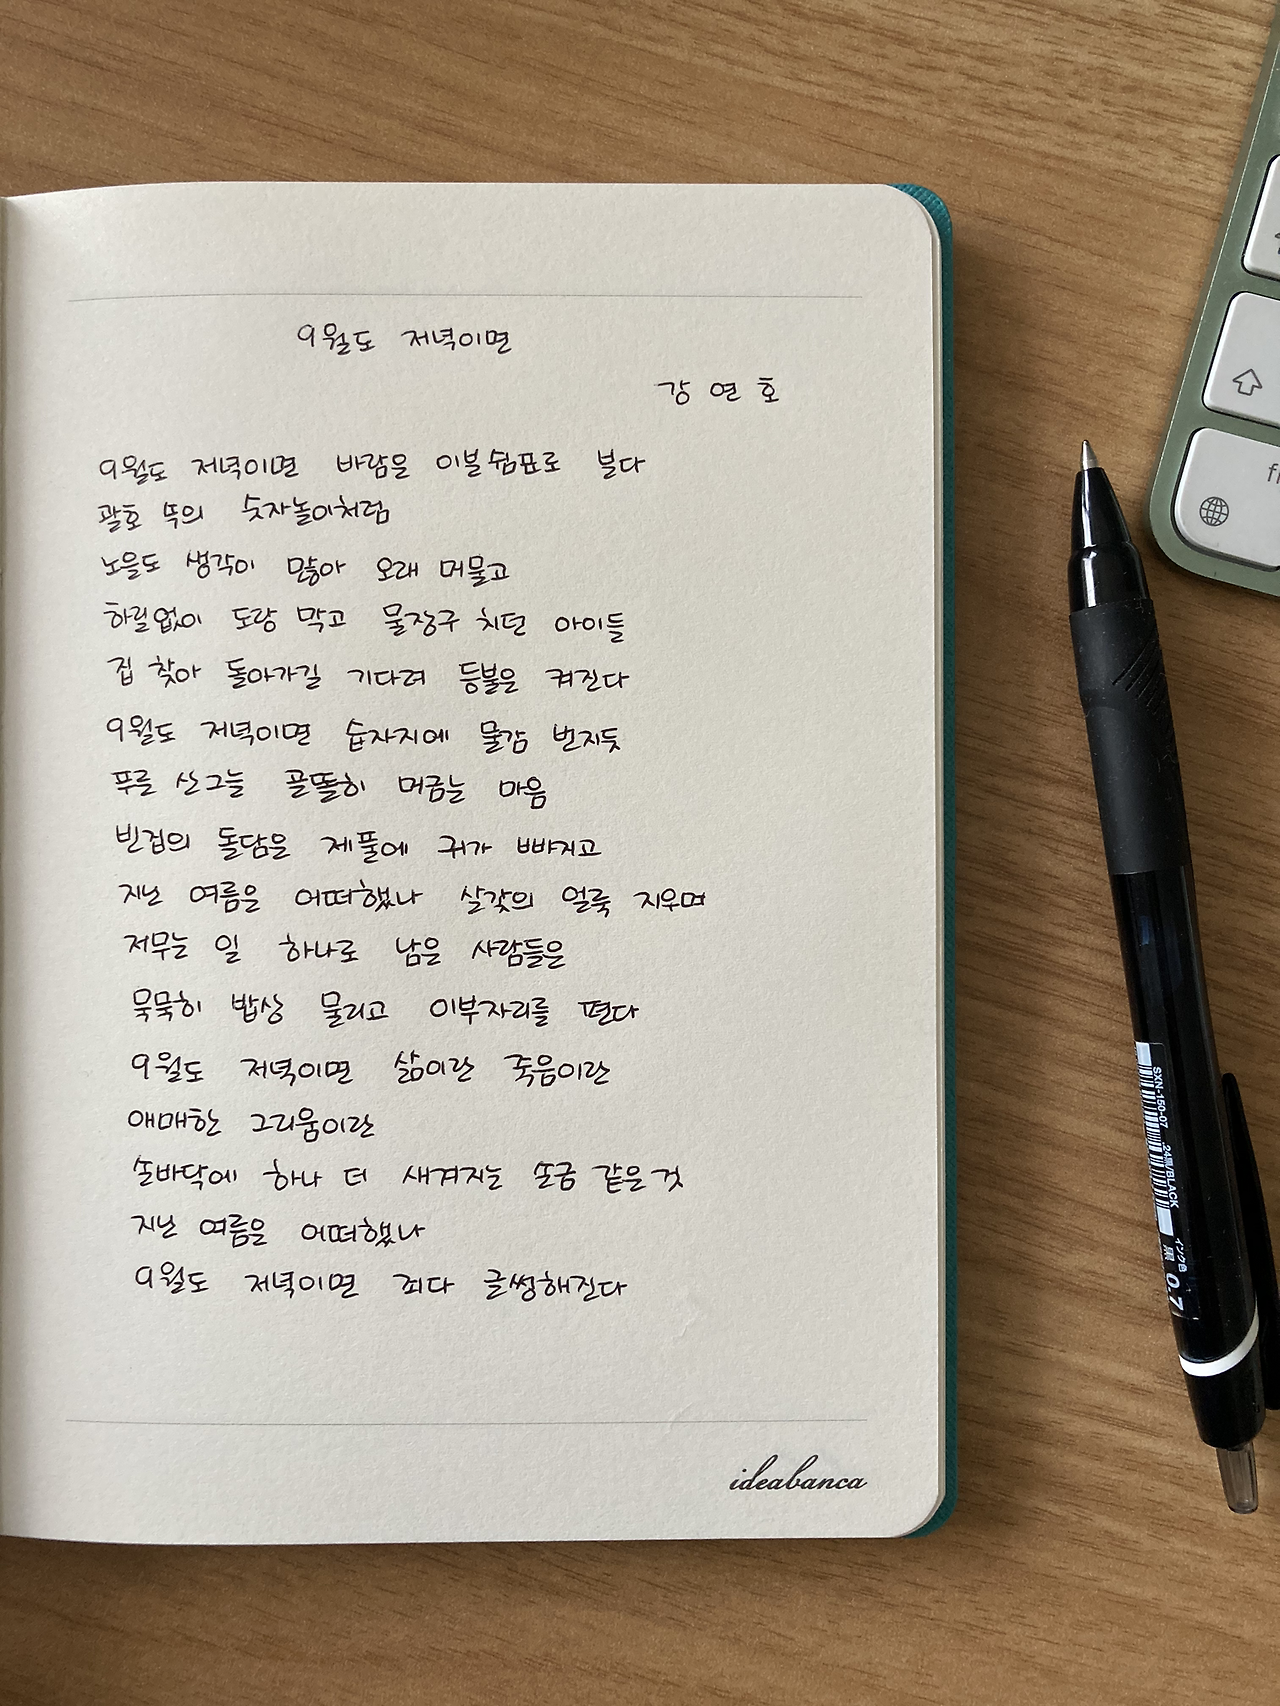 9월도 저녁이면
강 연 호
9월도 저녁이면 바람은 이불쉼표로 불다
괄호 뚝의 숫자놀이처럼
노을도 생각이 많아 오래 머물고
하릴없이 도랑 막고 물장구 치던 아이들
집 찾아 돌아가길 기다려 등불은 켜진다
9월도 저녁이면 습자지에 물감 번지듯
푸른 산그늘 골똘히 머금는 마음
빈집의 돌담은 제풀에 귀가 빠지고
지난 여름은 어떠했나 살갗의 얼룩 지우며
저무는 일 하나로 남은 사람들은
묵묵히 밥상 물리고 이부자리를 편다
9월도 저녁이면 삶이란 죽음이란
애매한 그리움이란
손바닥에 하나 더 새겨지는 손금 같은 것
지난 여름은 어떠했나
9월도 저녁이면 죄다 글썽해진다
ideabanca
SXN-150-07 .24 黒/BLACK
インク色 黒 0.7